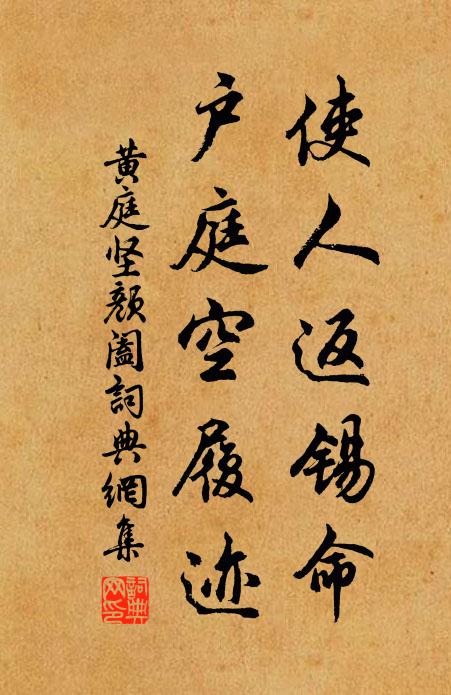 使人返锡命
户庭空履迹
黄庭坚颜阖詞典網集
詞典网印